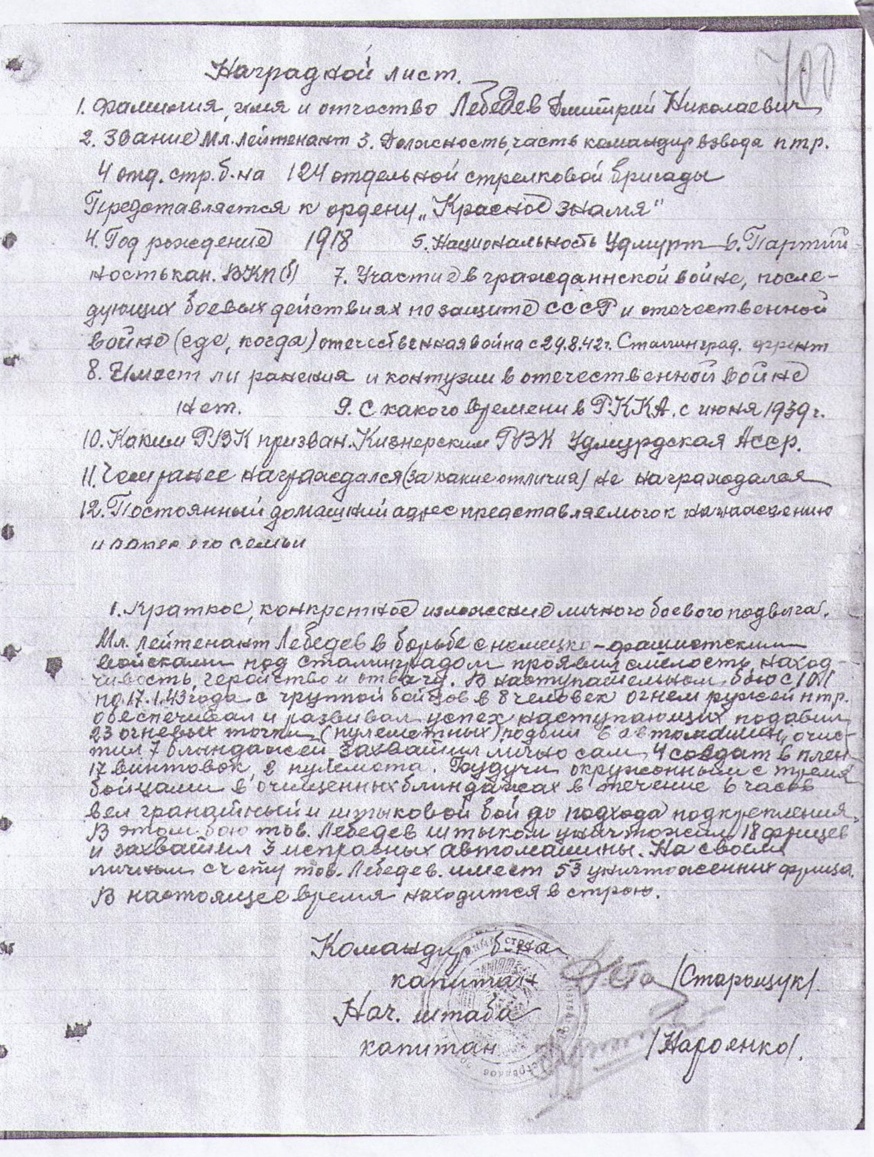 700
Наградной лист.
1. Фамилия, имя и отчество Лебедев Дмитрий Николаевич
2. Звание Мл. лейтенант 3. Должность, часть командир взвода птр.
4 отд. стр. б-на 124 отдельной стрелковой бригады
Представляется к ордену „Красное знамя"
4. Год рождения 1918 5. Национальность Удмурт 6. Партий-
ность кан. ВКП(б) 7. Участие в гражданнской войне, после-
дующих боевых действиях по защите СССР и отечественной
войне (где, когда) отечественная война с 29.8.42г. Сталинград. фронт
8. Имеет ли ранения и контузии в отечественной войне
Нет. 9. С какого времени в РККА. с июня 1939г.
10. Каким РВК призван. Кизнерским РВК Удмурдская Асср.
11. Чем ранее награждался (за какие отличия) не награждался
12. Постоянный домашний адрес представляемого к награждению
и его семьи
1. Краткое, конкретное изложение личного боевого подвига.
Мл. лейтенант Лебедев в борьбе с немецко-фашистским
войсками под сталинградом проявил смелость, наход-
чивость, геройство и отвагу. В наступательном бою с 10.1
по 17.1.43 года с группой бойцов в 8 человек огнем ружей птр.
обеспечивал и развивал успех наступающих подавил
23 огневых точки (пулеметных) подбил 6 автомашин, очис-
тил 7 блиндажей захватил лично сам 4 солдат в плен
17 винтовок, 2 пулемота. Будучи окруженным с тремя
бойцами в очищенных блиндажах в течение 6 часов
вел гранатный и штыковой бой до подхода подкрепления.
В этом бою тов. Лебедев штыком уничтожил 18 фрицев
и захватил 3 исправных автомашины. На своем
личном счету тов. Лебедев. имеет 53 уничтоженних фрица.
В настоящее время находится в строю.
Командир б-на
капитан /Старощук/.
Нач. штаба
капитан /Нароенко/.